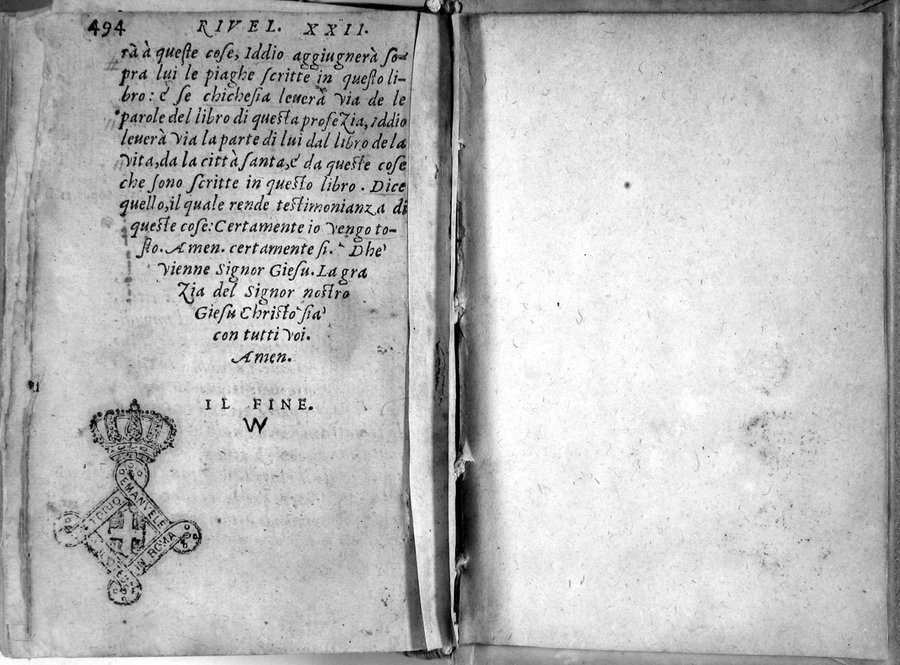 494 RIVEL. XXII.
rà à queste cose, Iddio aggiugnerà so-
pra lui le piaghe scritte in questo li-
bro: é se chichesia leuerà via de le
parole del libro di questa profeZia, Iddio
leuerà via la parte di lui dal libro de la
vita, da la città santa, é da queste cose
che sono scritte in questo libro. Dice
quello, il quale rende testimonianza di
queste cose: Certamente io vengo to-
sto. Amen. certamente si. Dhe
vienne Signor Giesu. La gra
Zia del Signor nostro
Giesu Christo sia
con tutti voi.
Amen.
IL FINE.
W
EMANVELE
IN ROMA